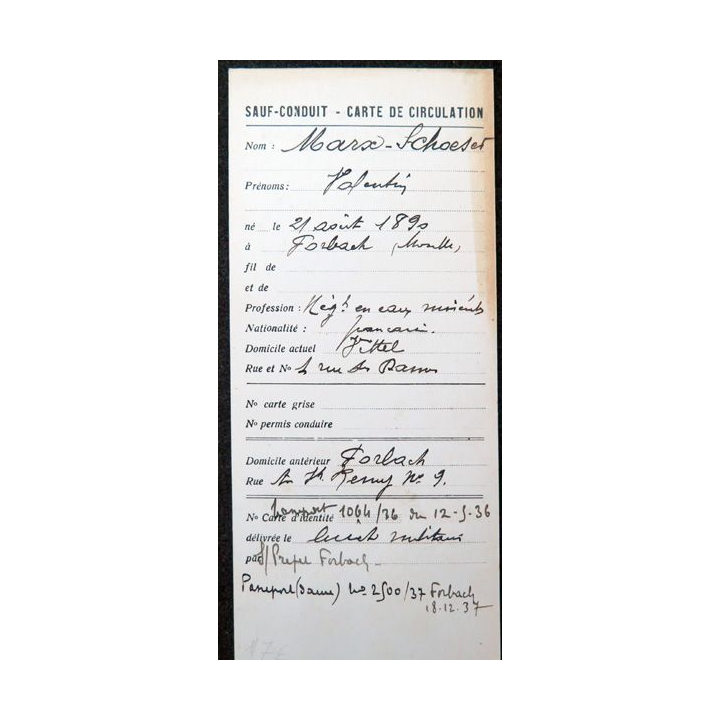 SAUF-CONDUIT - CARTE DE CIRCULATION
Nom : Marx-Schoeser
Prénoms : Valentin
né le 21 août 1890
à Forbach (Moselle)
fil de
et de
Profession : Négt en eaux minérales
Nationalité : française.
Domicile actuel Vittel
Rue et No rue des
No carte grise
No permis conduire
Domicile antérieur Forbach
Rue Remy No 9.
Passeport
No Carte d'identité 1064/36 du 12-5-36
délivrée le livret militaire
par S/Prefet Forbach -
Passeport (Dame) No 2500/37 Forbach
18.12.37